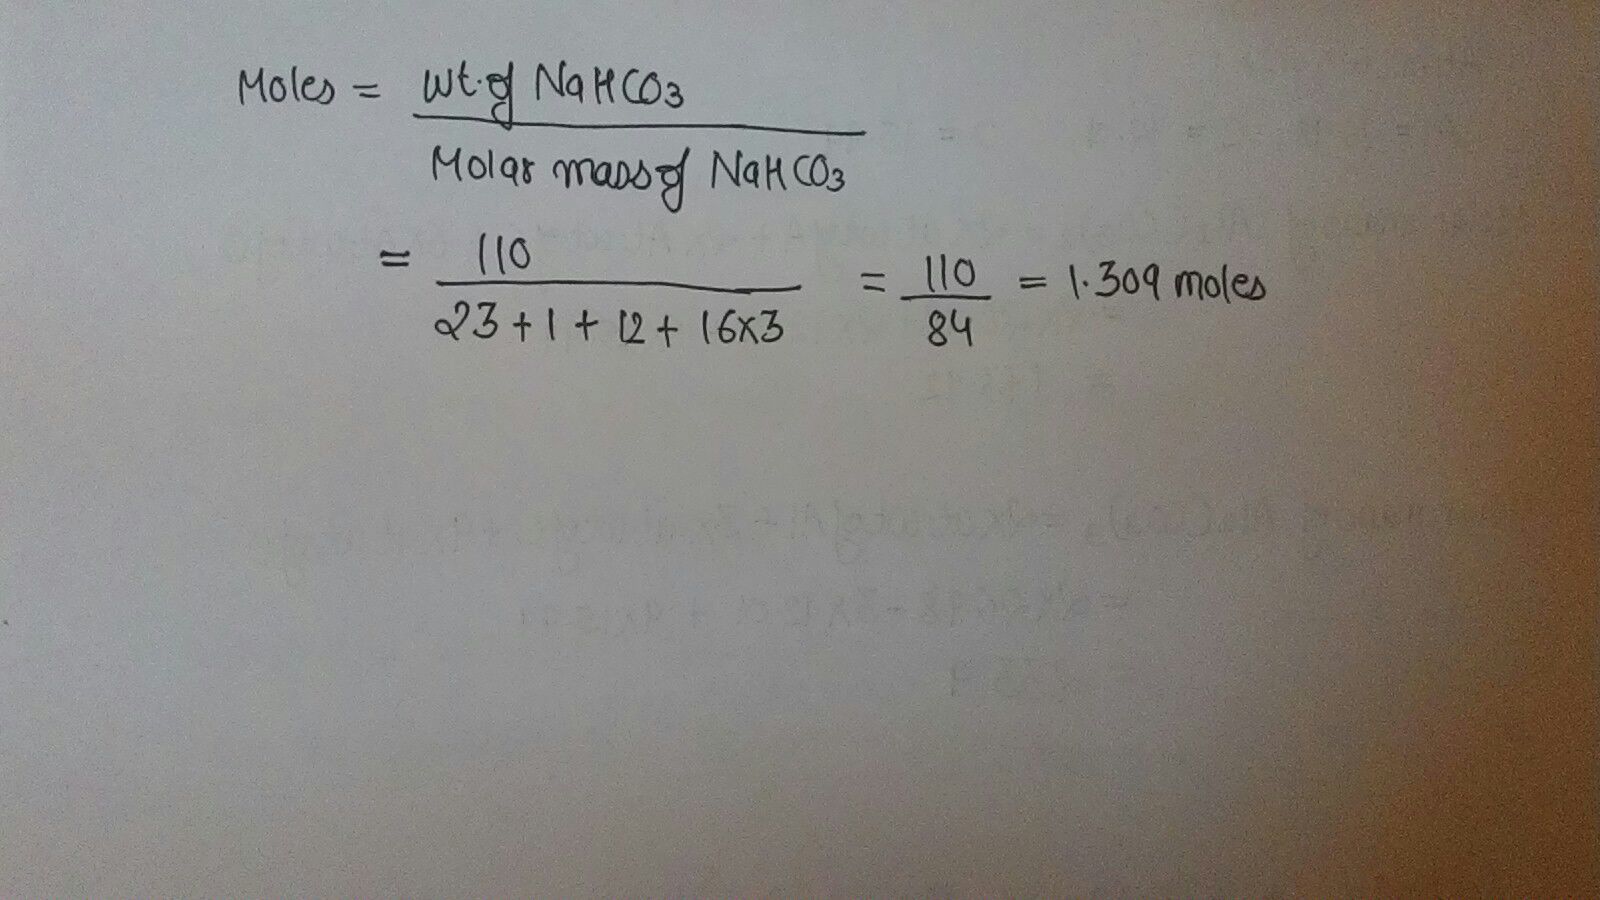 Moles = wt. of NaHCO3
Molar mass of NaHCO3
= 110 / 23 + 1 + 12 + 16x3 = 110 / 84 = 1.309 moles